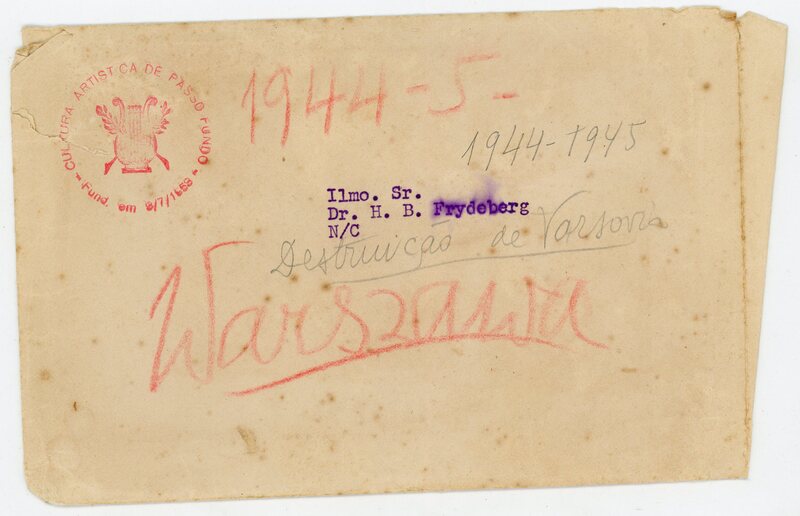 CULTURA ARTISTICA DE PASSO FUNDO
- Fund. em 8/7/1953 -
1944-5-
1944-1945
Ilmo. Sr.
Dr. H. B. Frydeberg
N/C
Destruição de Varsovia
Warszawa